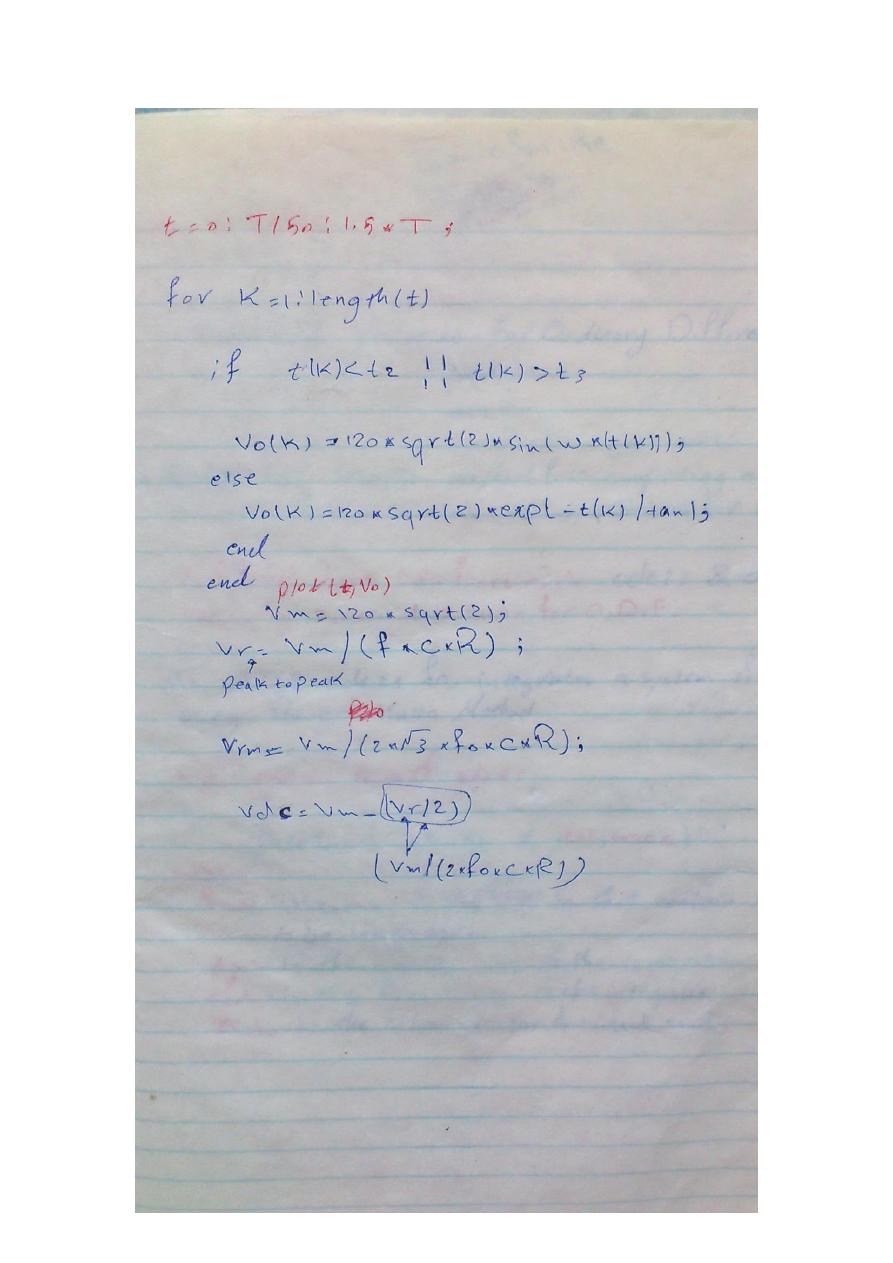 t=0:T/50:1.5*T;
for K=1:length(t)
if t(K)<t2 || t(K)>t3
Vo(K)=120*sqrt(2)*sin(w*(t(K)));
else
Vo(K)=120*sqrt(2)*exp(-t(K)/tau);
end
end plot(t,Vo)
Vm=120*sqrt(2);
Vr=Vm/(f*C*R);
peak to peak
Vrms=Vm/(2*√3*fo*C*R);
Vdc=Vm-(Vr/2)
(Vm/(2*fo*C*R))